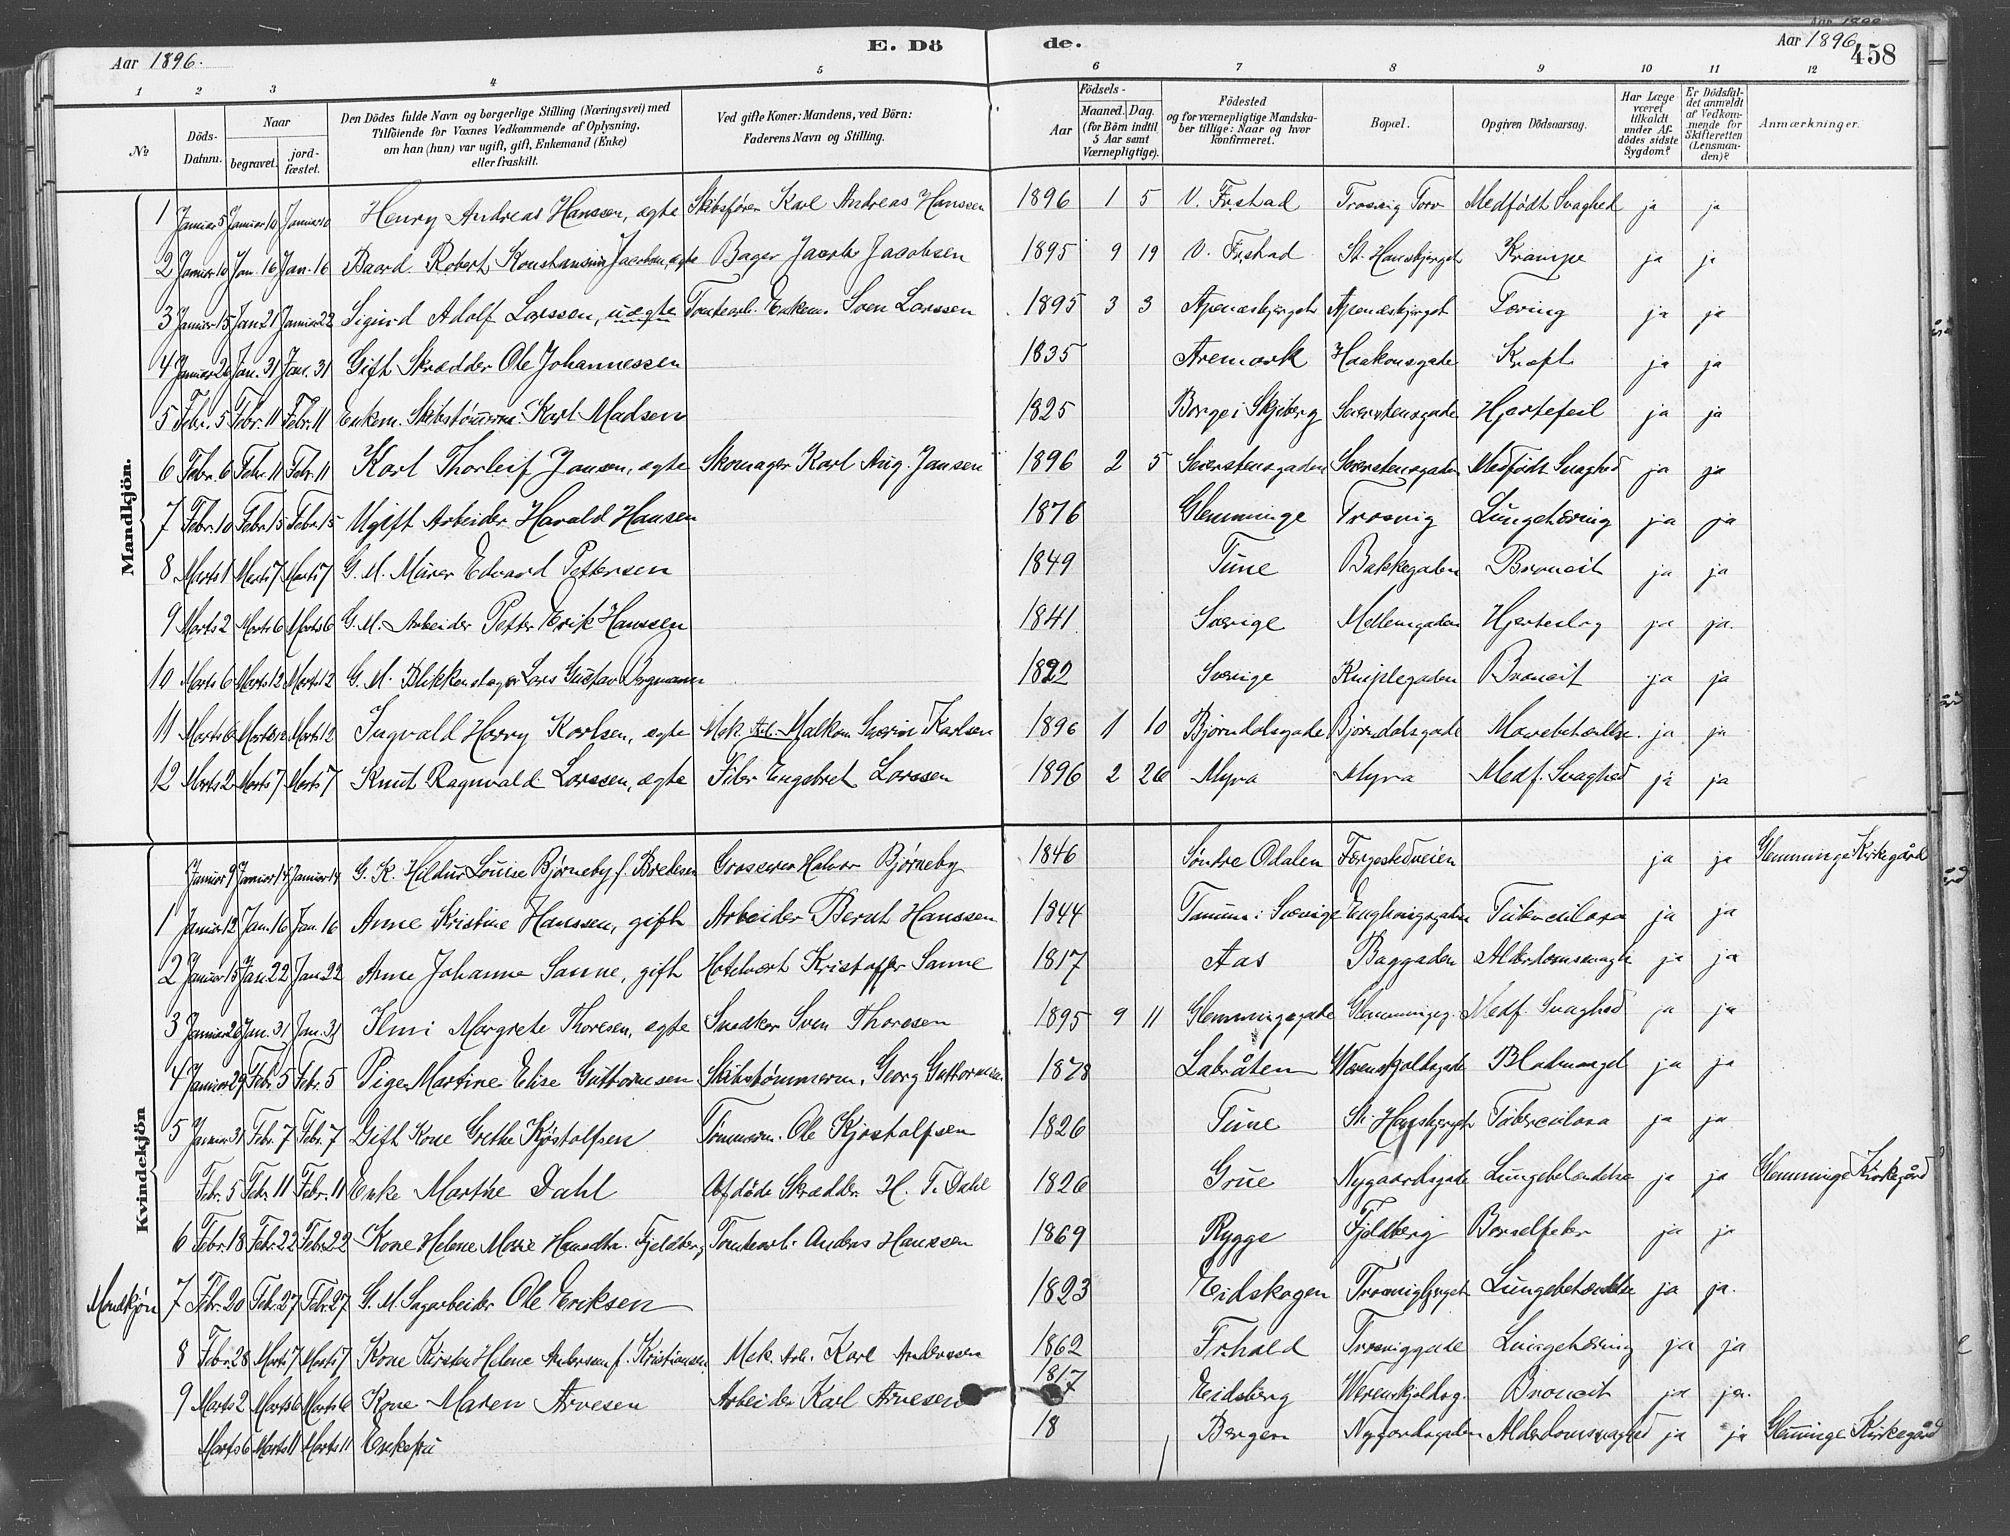 Aar 1896.
E. Döde.
Aar 1896
458
1 2 3 4 5 6 7 8 9 10 11 12
No
Döds-Datum.
Naar
begravet.
jord-fæstet.
Den Dödes fulde Navn og borgerlige Stilling (Næringsvei) med Tilföiende for Voxnes Vedkommende af Oplysning, om han (hun) var ugift, gift, Enkemand (Enke) eller fraskilt.
Ved gifte Koner: Mandens, ved Börn: Faderens Navn og Stilling.
Aar
Födsels-
Maaned. Dag.
(for Börn indtil 5 Aar samt Værnepligtige).
Födested og for værnepligtige Mandskaber tillige: Naar og hvor konfirmeret.
Bopæl.
Opgiven Dödsaarsag.
Har Læge været tilkaldt under Afdödes sidste Sygdom?
Er Dödsfaldet anmeldt af Vedkommende for Skifteretten (Lensmanden)?
Anmærkninger.
Mandkjön.
1 Januar 5 Januar 10 Januar 10 Henry Andreas Hanssen, ægte Skibsfører Karl Andreas Hanssen 1896 1 5 V. Frstad Trosvig Torv Medfødt Svaghed ja ja
2 Januar 10 Jan. 16 Jan. 16 Baard Robert Konstansius Jacobsen, ægte Bager Jacob Jacobsen 1895 9 19 V. Frstad St. Hansbjerget Krampe ja ja
3 Januar 15 Jan 21 Januar 22 Sigurd Adolf Larssen, uægte Tomtearb. Enkem. Sven Larssen 1895 3 3 Apenæsbjerget Apenæsbjerget Tæring ja ja
4 Januar 26 Jan. 31 Jan. 31 Gift Skrædder Ole Johannessen 1835 Aremark Haakonsgade Kræft ja ja
5 Febr. 5 Febr. 11 Febr. 11 Enkem. Skibstømmerm. Karl Madsen 1825 Borge i Skjeberg Sverstensgade Hjertefeil ja ja
6 Febr. 6 Febr. 11 Febr. 11 Karl Thorleif Jansen, ægte Skomager Karl Aug. Jansen 1896 2 5 Sverstensgaden Sverstensgaden Medfødt Svaghed ja ja
7 Febr. 10 Febr. 15 Febr. 15 Ugift Arbeider Harald Hansen 1876 Glemminge Trosvig Lungetæring ja ja
8 Marts 1 Marts 7 Marts 7 G. M. Murer Edvard Pettersen 1849 Tune Bakkegaden Broncit ja ja
9 Marts 2 Marts 6 Marts 6 G. M. Arbeider Petter Erik Hanssen 1841 Sverige Mellemgaden Hjerteslag ja ja.
10 Marts 6 Marts 12 Marts 12 G. M. Blikkenslager Lars Gustav 1822 Sverige Kniplegaden Broncit ja ja
11 Marts 6 Marts 12 Marts 12 Ingvald Harry Karlsen, ægte Mek. Arb. Malkom Severin Karlsen 1896 1 10 Bjørndalsgade Bjørndalsgade ja ja
12 Marts 2 Marts 7 Marts 7 Knut Ragnvald Larssen, ægte Fibr Engebret Larssen 1896 2 26 Myra Myra Medf. Svaghed ja ja
Kvindekjön
Januar 9 Januar 14 Januar 14 G. K. Hildur Louise Bjørneby f. Bredesen Grosserer Halvor Bjørneby 1846 Søndre Odalen Færgestedveien ja ja Glemminge Kirkegård
1 Januar 12 Jan. 16 Jan. 16 Anne Kristine Hanssen, gift Arbeider Bernt Hanssen 1844 Tanum i Sverige Enghaugsgaden Tuberculosa ja ja
2 Januar 15 Jan. 22 Jan 22 Anne Johanne Sanne, gift Hotelvært Kristoffer Sanne 1817 Aas Baggaden Alderdomssvagh ja ja
3 Januar 26 Jan. 31 Jan. 31 Ilmi Margrete Thoresen, ægte Snedker Sven Thoresen 1895 9 11 Glemmingegade Glemmingeg. Medf. Svaghed ja ja
4 Januar 29 Febr. 5 Febr. 5 Pige Martine Elise Guttormsen Skibstømmerm. Georg Guttormsen 1878 Labråten Werenskjoldsgade Blodmangel ja ja
5 Januar 31 Febr. 7 Febr. 7 Gift Kone Grethe Kjøstolfsen Tømmerm. Ole Kjøstolfsen 1826 Tune St. Hansbjerget Tuberculosa ja ja
Febr. 5 Febr. 11 Febr. 11 Enke Marthe Dahl Afdöde Skrædder H. T. Dahl 1826 Grue Nygaardsgade Lungebetændelse ja ja Glemminge Kirkegård
6 Febr. 18 Febr. 22 Febr. 22 Kone Helene Marie Hansdtr. Fjeldberg Tomtearb. Anders Hanssen 1869 Rygge Fjeldberg Barselfeber ja ja
Mandkjøn 7 Febr. 20 Febr. 27 Febr. 27 G. M. Sagarbeider Ole Eriksen 1823 Eidskogen Trosvigbjerget Lungebetændelse ja ja.
8 Febr. 28 Marts 7 Marts 7 Kone Kirsten Helene Andersen f. Kristiansen Mek. Arb. Karl Andersen 1862 Frhald Trosviggade Lungetæring ja ja
9 Marts 2 Marts 6 Marts 6 Kone Maren Arvesen Arbeider Karl Arvesen 1817 Eidsberg Werenskjoldsg. Broncit ja ja.
Marts 6 Marts 11 Marts 11 Enkefru 18 Bergen Nygaardsgaden Alderdomssvaghed ja ja Glemminge Kirkegård